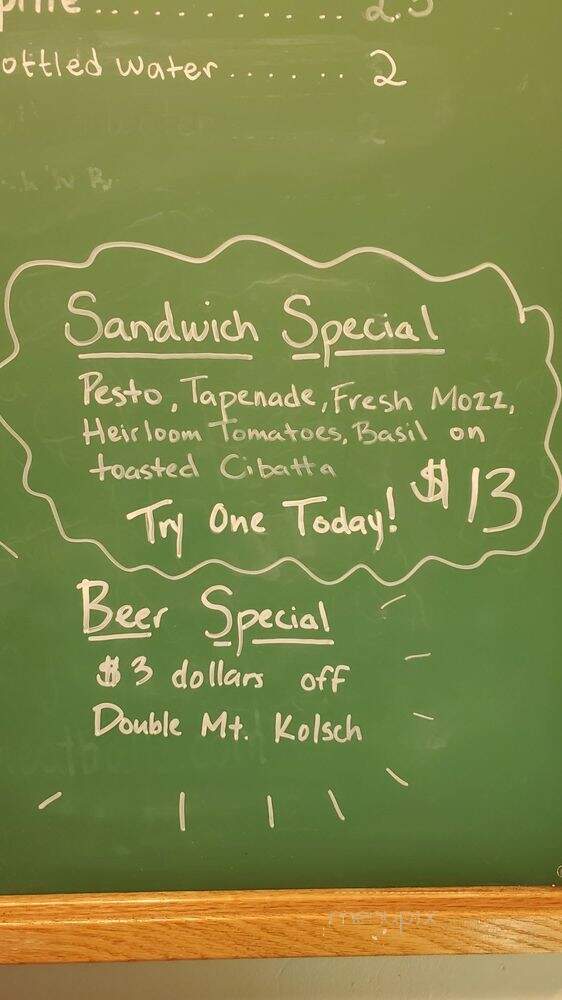 ottled water ...... 2
Sandwich Special
Pesto, Tapenade, Fresh Mozz,
Heirloom Tomatoes, Basil on
toasted Cibatta
$13
Try One Today!
Beer Special
$3 dollars off
Double Mt. Kolsch